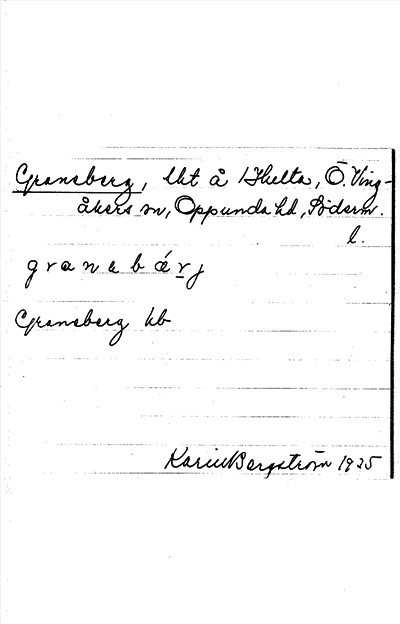 Gransberg, lht å 1/2 Hulta, Ö. Ving-
åkers sn, Oppunda hd, Söderm.
l.
g r a n s b ǽ r j
Gransberg kb
Karin Bergström 1935